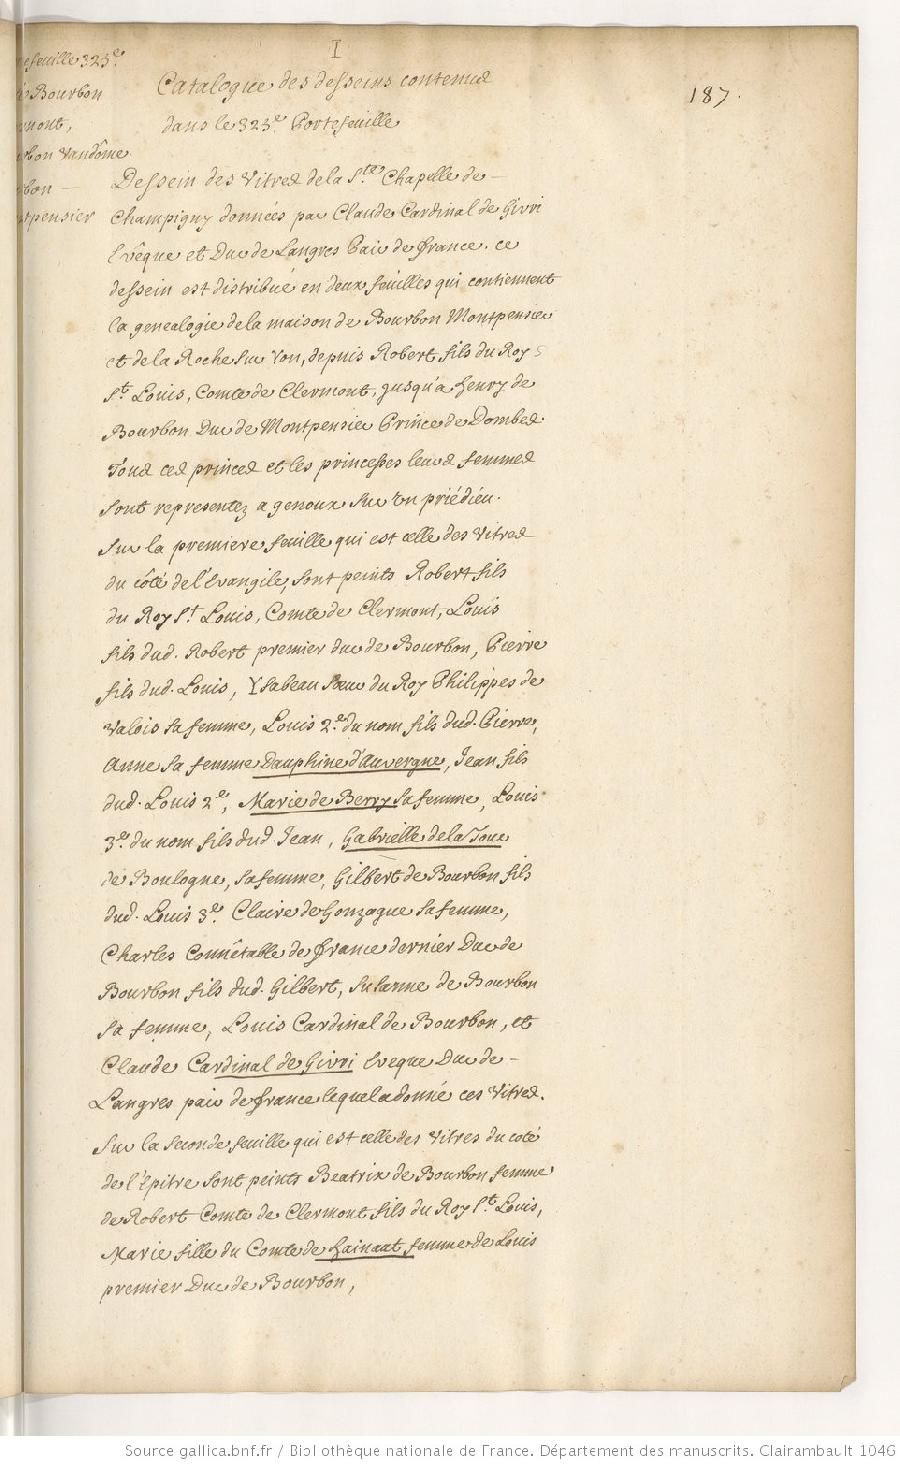 I
187.
efeuille 323e.
Bourbon
mont,
bon Vandôme
bon —
tpensier
Catalogue des desseins contenus
dans le 323e. Portefeuille
Dessein des Vitres de la Ste. Chapelle de —
Champigny données par Claude Cardinal de Givri
Evêque et Duc de Langres Pair de france. ce
dessein est distribué en deux feuilles qui contiennent
la genealogie de la maison de Bourbon Montpensier
et de la Roche sur Yon, depuis Robert fils du Roy
St. Louis, Comte de Clermont, jusqu'a henry de
Bourbon Duc de Montpensier Prince de Dombes.
Tous ces princes et les princesses leurs femmes
sont representez a genoux sur un priédieu.
Sur la premiere feuille qui est celle des Vitres
du côté de l'Evangile, sont peints Robert fils
du Roy St. Louis, Comte de Clermont, Louis
fils dud. Robert premier duc de Bourbon, Pierre
fils dud. Louis, Ysabeau soeur du Roy Philippes de
Valois sa femme, Louis 2e. du nom fils dud. Pierre,
Anne sa femme Dauphine d'Auvergne, Jean fils
dud. Louis 2e, Marie de Berry sa femme, Louis
3e. du nom fils dud Jean, Gabrielle de la Tour
de Boulogne, sa femme, Gilbert de Bourbon fils
dud. Louis 3e. Claire de Gonzague sa femme,
Charles Connêtable de france dernier Duc de
Bourbon fils dud. Gilbert, Susanne de Bourbon
sa femme, Louis Cardinal de Bourbon, et
Claude Cardinal de Givri Eveque Duc de —
Langres pair de france lequel a donné ces Vitres.
Sur la seconde feuille qui est celle des Vitres du coté
de l'Epitre sont peints Beatrix de Bourbon femme
de Robert Comte de Clermont fils du Roy St. Louis,
Marie fille du Comte de hainaut, femme de Louis
premier Duc de Bourbon,
Source gallica.bnf.fr / Bibliothèque nationale de France. Département des manuscrits. Clairambault 1046